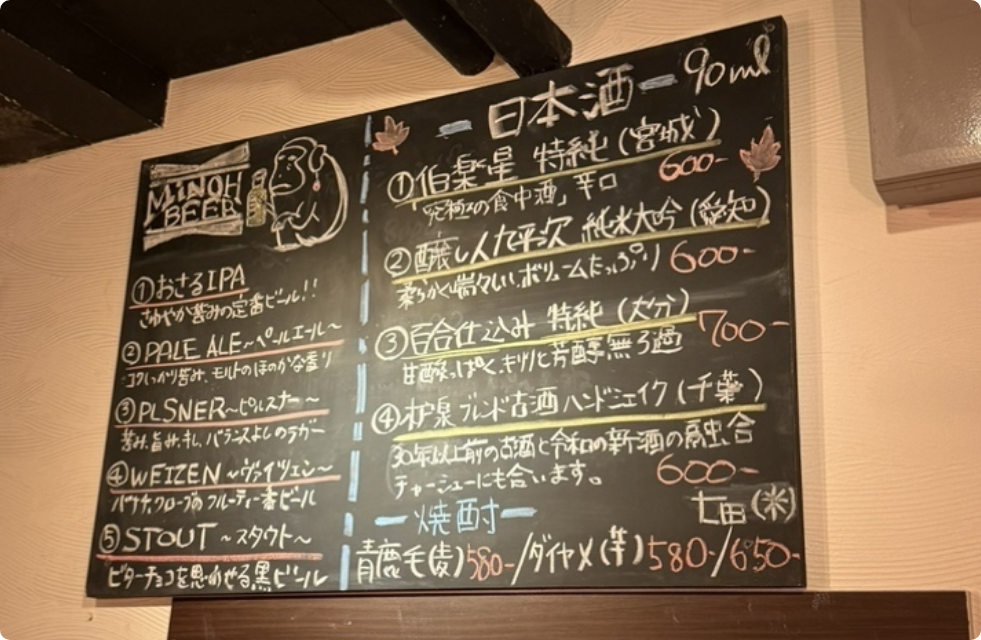 MINOH
BEER
①おさるIPA
さわやか苦みの定番ビール!!
②PALE ALE~ペールエール~
コクしっかり苦み、モルトのほのかな香り
③PLSNER~ピルスナー~
苦み、旨み、キレ、バランスよしのラガー
④WEIZEN ~ヴァイツェン~
バナナ、クローブのフルーティー系ビール
⑤STOUT ~スタウト~
ビターチョコを思わせる黒ビール
ー日本酒ー 90ml
①伯楽星 特純 (宮城)
600-
「究極の食中酒」辛口
②醸し人九平次 純米大吟 (愛知)
柔らかく瑞々しい、ボリュームたっぷり 600-
③百合仕込み 特純 (大分) 700-
甘酸っぱく、キリリと芳醇無ろ過
④ ブレンド古酒ハンドシェイク (千葉)
30年以上前の古酒と令和の新酒の融合
チャーシューにも合います。 600-
ー焼酎ー 七田(米)
青鹿毛(麦)580-/ダイヤメ(芋)580-/650-